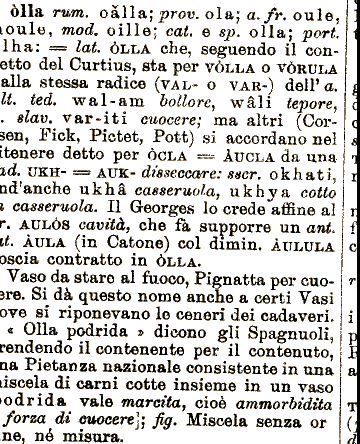 òlla rum. oălla; prov. ola; a. fr. oule,
oule, mod. oille; cat. e sp. olla; port.
lha: = lat. ÒLLA che, seguendo il con-
etto del Curtius, sta per VÒLLA o VÒRULA
alla stessa radice (VAL- o VAR-) dell' a.
lt. ted. wal-am bollore, wâli tepore,
. slav. var-iti cuocere; ma altri (Cor-
sen, Fick, Pictet, Pott) si accordano nel
itenere detto per ÒCLA = ÀUCLA da una
ad. UKH- = AUK- disseccare: sscr. okhati,
nd'anche ukhâ casseruola, ukhya cotto
n casseruola. Il Georges lo crede affine al
r. AULÒS cavità, che fà supporre un ant.
at. ÀULA (in Catone) col dimin. ÀULULA
oscia contratto in ÒLLA.
Vaso da stare al fuoco, Pignatta per cuo-
ere. Si dà questo nome anche a certi Vasi
ove si riponevano le ceneri dei cadaveri.
« Olla podrida » dicono gli Spagnuoli,
rendendo il contenente per il contenuto,
na Pietanza nazionale consistente in una
iscela di carni cotte insieme in un vaso
podrida vale marcita, cioè ammorbidita
forza di cuocere]; fig. Miscela senza or
ne, né misura.